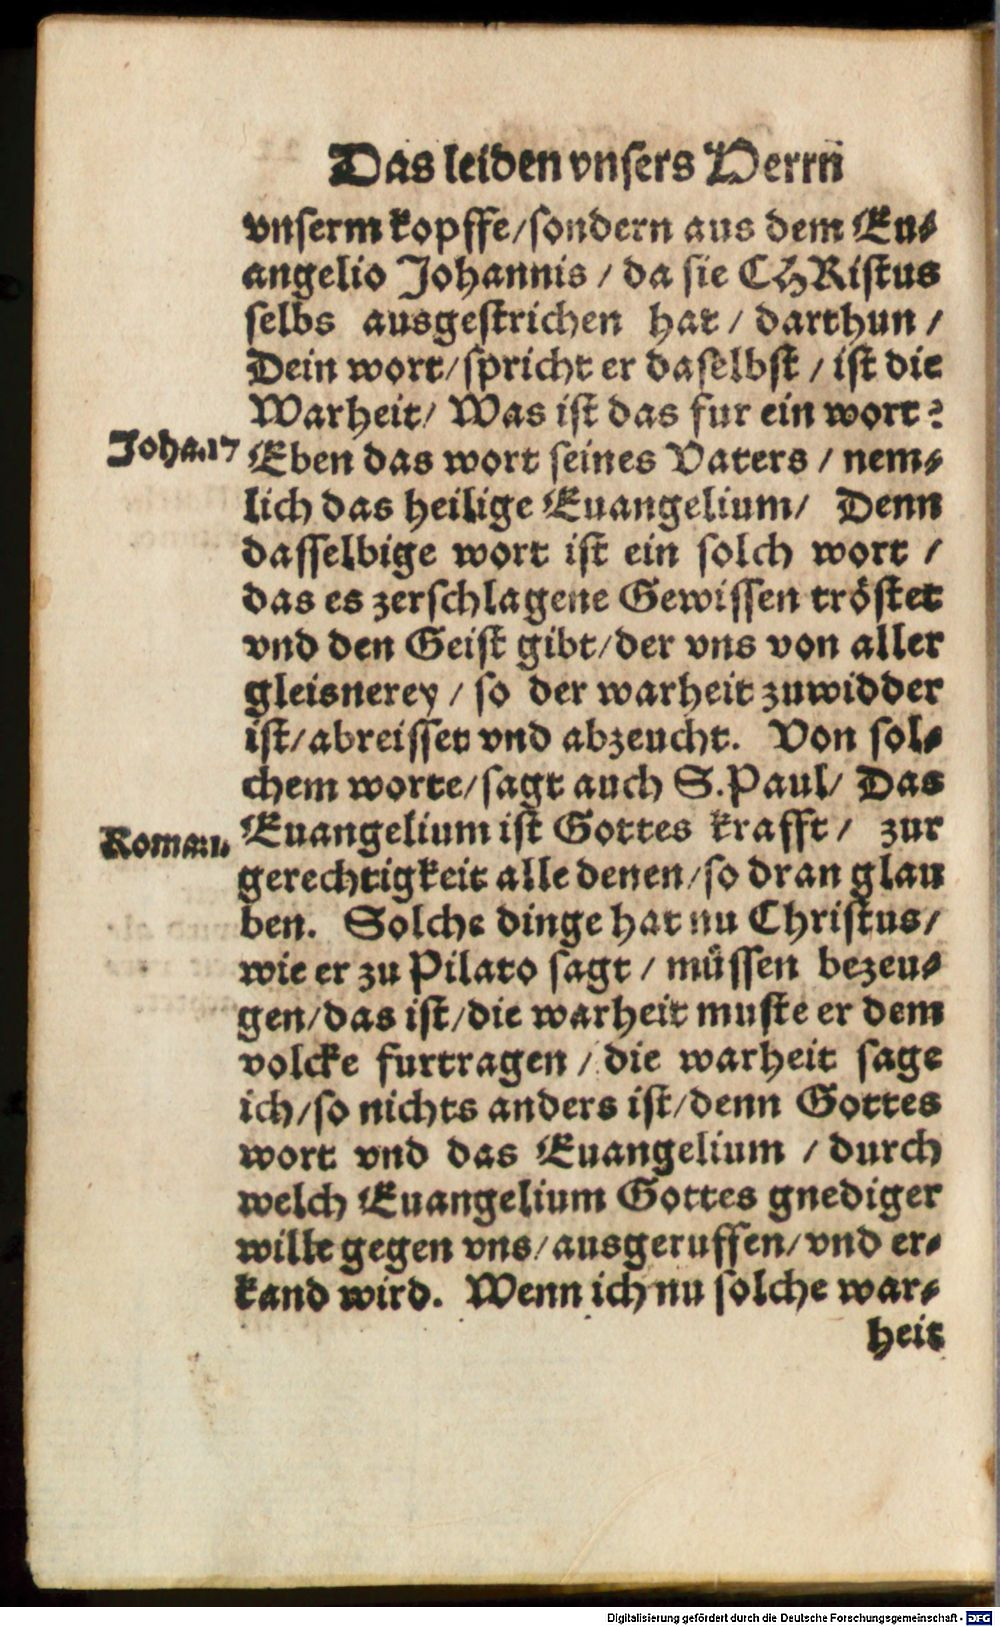 Das leiden vnsers Herrn
vnserm kopffe/sondern aus dem Eu⸗
angelio Johannis / da sie CHRistus
selbs ausgestrichen hat / darthun /
Dein wort/spricht er daselbst / ist die
Warheit/ Was ist das fur ein wort?
Joha.17
Eben das wort seines Vaters / nem⸗
lich das heilige Euangelium/ Denn
dasselbige wort ist ein solch wort /
das es zerschlagene Gewissen tröstet
vnd den Geist gibt/der vns von aller
gleisnerey / so der warheit zuwidder
ist/abreisset vnd abzeucht. Von sol⸗
chem worte/sagt auch S.Paul/ Das
Roma.1.
Euangelium ist Gottes krafft / zur
gerechtigkeit alle denen/so dran glau
ben. Solche dinge hat nu Christus/
wie er zu Pilato sagt / müssen bezeu⸗
gen/das ist/die warheit muste er dem
volcke furtragen / die warheit sage
ich/so nichts anders ist/denn Gottes
wort vnd das Euangelium / durch
welch Euangelium Gottes gnediger
wille gegen vns/ausgeruffen/vnd er⸗
kand wird. Wenn ich nu solche war⸗
heit
Digitalisierung gefördert durch die Deutsche Forschungsgemeinschaft - DFG